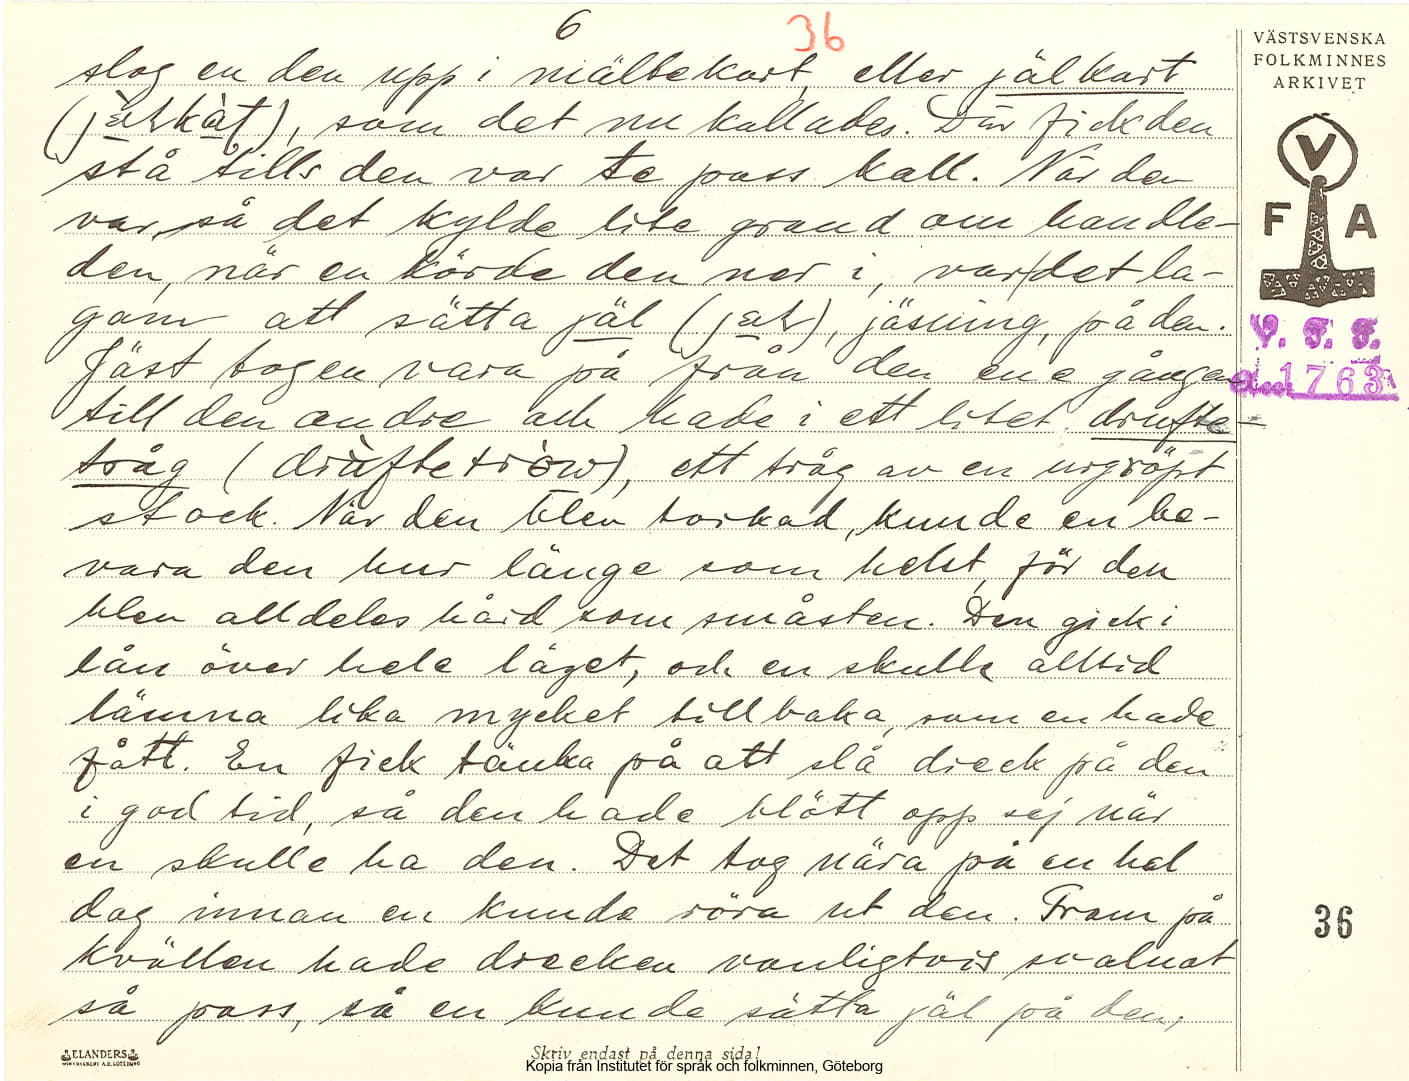 6
36
slog en den upp i mältekart, eller jälkart
(jälkàt), som det nu kallades. Där fick den
stå tills den var te pass kall. När den
var, så det kylde lite grand om handle-
den, när en körde den ner i, var det la-
gom att sätta jäl (jäl), jäsning, på den.
Jäst tog en vara på från den ene gången
till den andre och hade i ett litet drufte-
tråg (drùftetròw), ett tråg av en urgröpt
stock. När den blev torkad, kunde en be-
vara den hur länge som helst, för den
blev alldeles hård som småsten. Den gick i
lån över hele läget, och en skulle alltid
lämna lika mycket tillbaka, som en hade
fått. En fick tänka på att slå dreck på den
i god tid, så den hade blött opp sej när
en skulle ha den. Det tog nära på en hel
dag innan en kunde röra ut den. Fram på
kvällen hade drecken vanligtvis svalnat
så pass, så en kunde sätta jäl på den,
VÄSTSVENSKA
FOLKMINNES
ARKIVET
V
F A
V. F. F.
1763
36
ELANDERS
Skriv endast på denna sida!
Kopia från Institutet för språk och folkminnen, Göteborg